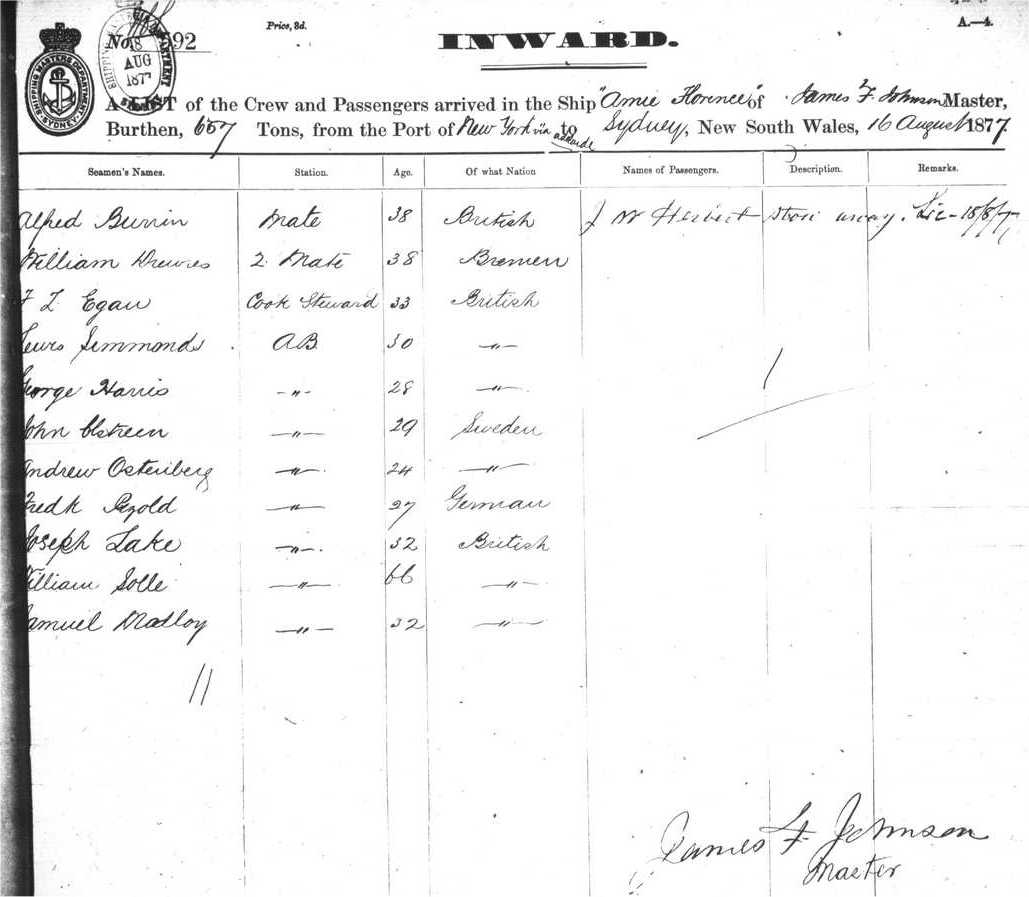 A.—4.
Price, 3d.
No. 92
INWARD.
SHIPPING MASTERS DEPARTMENT
SYDNEY
18
AUG
1877
A LIST of the Crew and Passengers arrived in the Ship "Amie Florence" of James F. Johnson Master,
Burthen, 657 Tons, from the Port of New York via to Sydney, New South Wales, 16 August 1877
Seamen's Names. Station. Age. Of what Nation Names of Passengers. Description. Remarks.
Alfred Burrin Mate 38 British J W Herbert Stow away. 18/8/77
William Drewes 2. Mate 38 Bremen
Egan Cook Steward 33 British
Lewis Simmonds A.B. 30 —"—
George Harris —"— 28 —"—
John —"— 29 Sweden
Andrew Ostenberg —"— 24 —"—
Fredk Pezold —"— 27 German
Joseph Lake —"— 32 British
William Solle —"— 66 —"—
Samuel Malloy —"— 32 —"—
11
1
James F. Johnson
Master